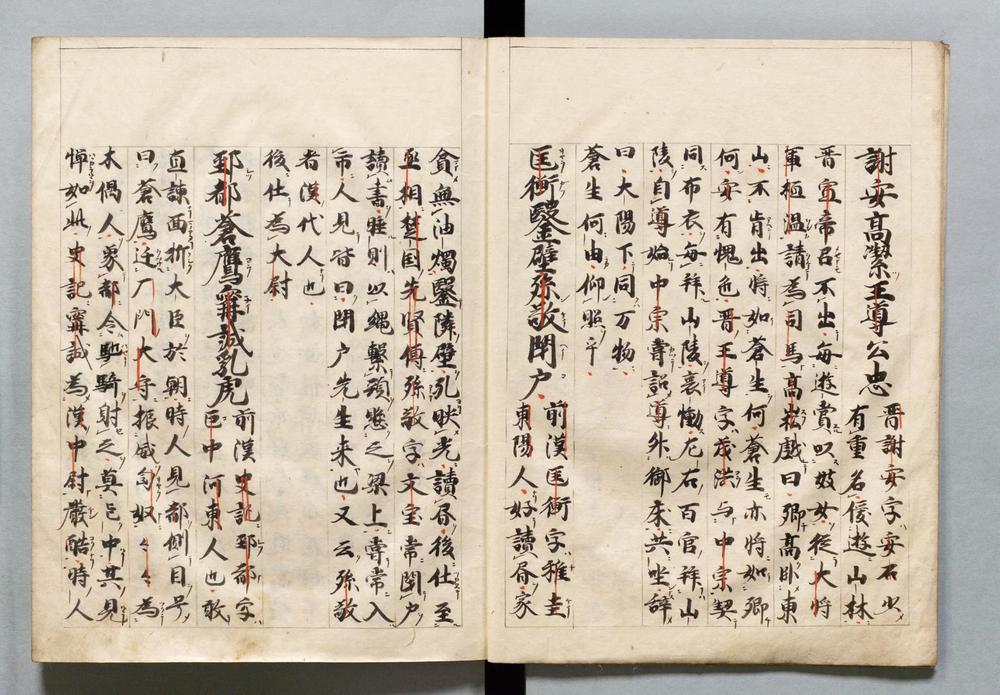 謝安高潔王導公忠
晋謝安字安石少
有重名優遊山林
晋宣帝召不出每遊賞以妓女從大将
軍桓温請為司馬高崧戯曰卿高臥東
山不肯出将如蒼生何蒼生亦将如卿
何安有愧色晋王導字茂法与中宗契
同布衣每拜山陵哀慟左右百官拜山
陵自導始中宗詔導外御床共坐辞
曰大陽下同万物
蒼生何由仰照乎
匡衡鑿壁孫敬閉户
前漢匡衡字稚圭
東陽人好讀書家
貧無油燭鑿隣壁孔映光讀書後仕至
丞相楚国先賢傳孫敬字文宝常閇户
讀書睡則以縄繋頭懸之梁上甞常入
市人見皆曰閉户先生来也又云孫敬
者漢代人也
後仕為大尉
郅都蒼鷹甯誠乳虎
前漢史記郅都字
巨中河東人也敢
直諫面折大臣於朝時人見都側目号
曰蒼鷹迁厂門大守振威匈奴々々為
木偶人象都令馳騎射之莫巨中其見
憚如此史記甯誠為漢中尉嚴酷時人